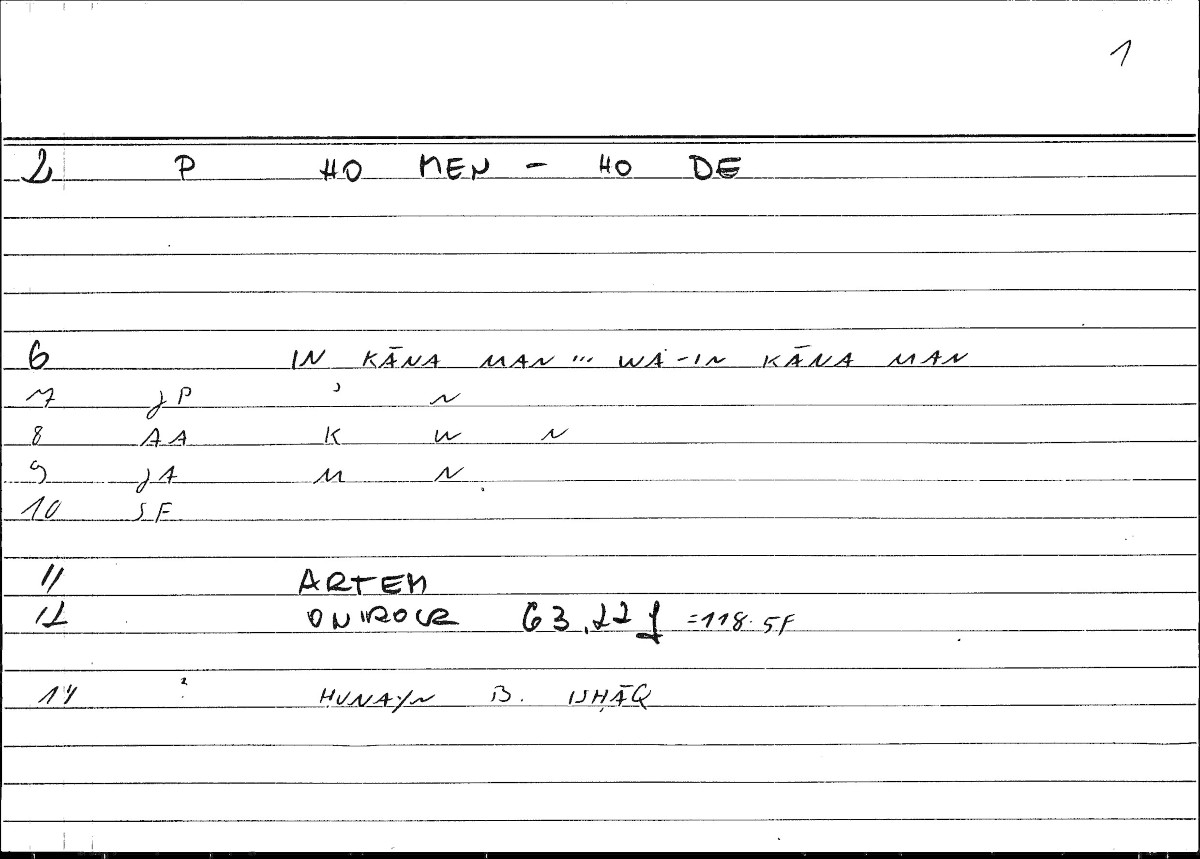 1
2 P HO MEN - HO DE
6 IN KĀNA MAN ... WA-IN KĀNA MAN
7 JP ʾ N
8 AA K W N
9 JA M N
10 SF
11 ARTEM
12 ONIROCR 63,22 f =118.5F
14 : ḤUNAYN B. ISḤĀQ